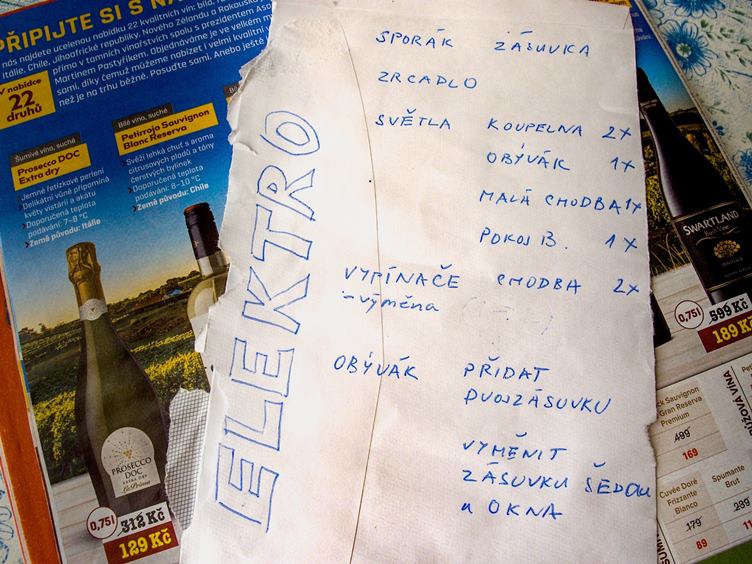 PŘIPIJTE SI S NA
nás najdete ucelenou nabídku 22 kvalitních vín: bíla,
Itálie, Chile, Jihoafrické republiky, Nového Zélandu a Rakouska
přímo v tamních vinařstvích spolu s prezidentem Aso
Martinem Pastyříkem. Objednáváme je ve velkém m
sami, díky čemuž můžeme nabízet i velmi kvalitní
než je na trhu běžné. Posuďte sami. Anebo ještě
V nabídce
22
druhů
Šumivé víno, suché
Prosecco DOC
Extra dry
Jemné řetízkové perlení
Delikátní vůně připomíná
květy vistárií a akátu
Doporučená teplota
podávání: 7–8 °C
Země původu: Itálie
Bílé víno, suché
Petirrojo Sauvignon
Blanc Reserva
Svěží lehká chuť s aroma
citrusových plodů a tóny
čerstvých bylinek
Doporučená teplota
podávání: 8–10 °C
Země původu: Chile
PROSECCO
DOC
EXTRA DRY
0,75l
312 Kč
129 Kč
ELEKTRO
SPORÁK ZÁSUVKA
ZRCADLO
SVĚTLA KOUPELNA 2x
OBÝVÁK 1x
MALÁ CHODBA 1x
POKOJ B. 1x
VYPÍNAČE CHODBA 2x
-výměna
OBÝVÁK PŘIDAT
DVOJZÁSUVKU
VYMĚNIT
ZÁSUVKU ŠEDOU
u OKNA
SWARTLAND
0,75l
599 Kč
189 Kč
ck Sauvignon
Gran Reserva
Premium
499
169
Cuvée Doré
Frizzante
Bianco
179
89
Spumante
Brut
239